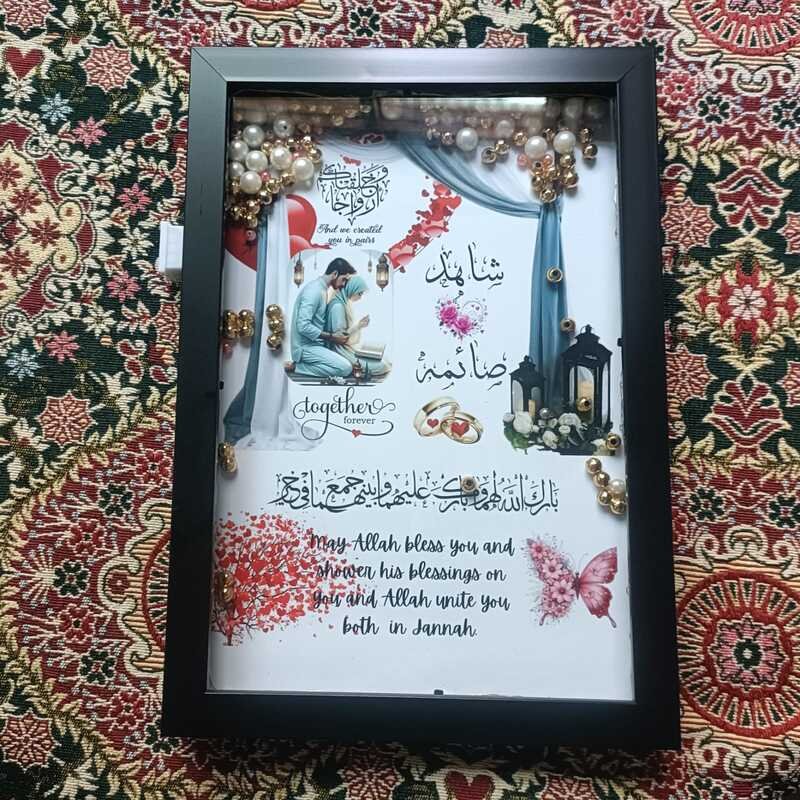 وخلقناكم
أزواجا
And we created
you in pairs
شاهد
و
صائمه
together
forever
بارك الله لهما وبارك عليهما وجمع بينهما في خير
May Allah bless you and
shower his blessings on
you and Allah unite you
both in Jannah.